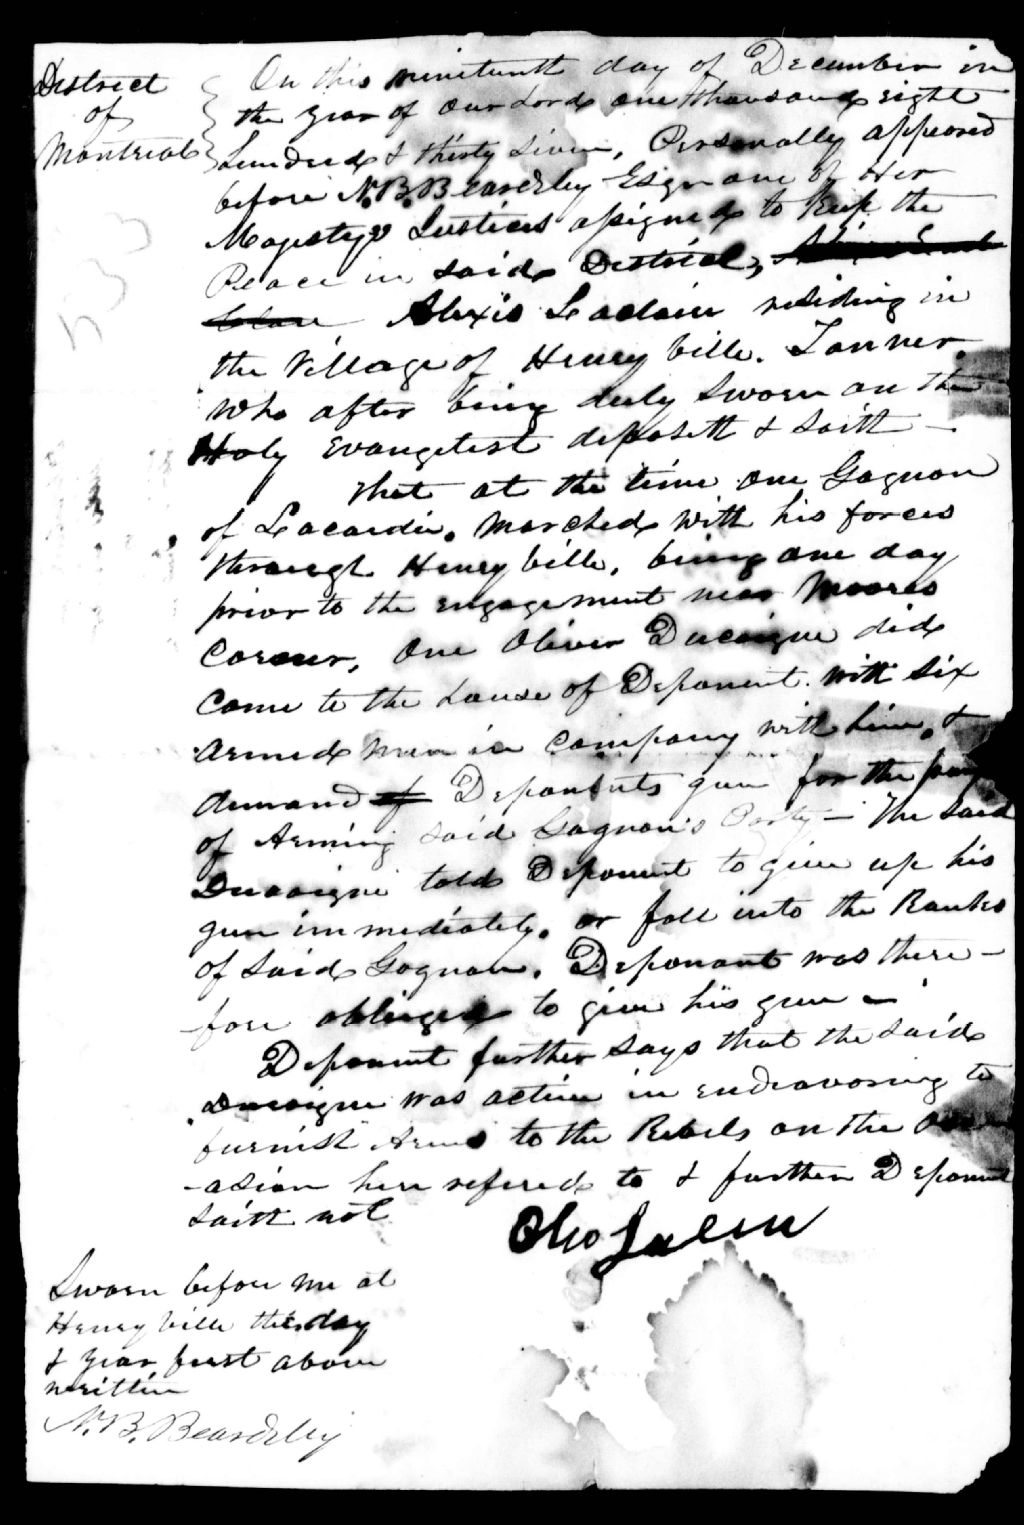 District
of
Montreal
On this nineteenth day of December in
the year of our Lord one thousand eight
hundred & thirty seven, Personally appeared
before N. B. Beardsley Esqr one of Her
Majestys Justices asigned to Keep the
Peace in said District,
Alexis Leclair residing in
the Village of Henryville. Tanner.
Who after being duly Sworn on the
Holy Evangelist deposeth & Saith —
that at the time one Gagnon
of Lacardie. Marched with his forces
through Henryville, being one day
prior to the engagement near Moores
Corner, One Oliver Ducaigne did
Come to the house of Deponent. with six
armed men in Company with him, &
demand of Deponents gun for the
of Arming said Gagnon's Party — The said
Ducaigne told Deponent to give up his
gun immediately. or fall into the Ranks
of said Gagnon. Deponant was there-
-fore obliged to give his gun —
Deponent further says that the said
Ducaigne was active in endeavoring to
furnish Arms to the Rebels on the
-asion here refered to & further Deponent
Saith not
Sworn before me at
Henryville the day
& year first above
written
N. B. Beardsley
533